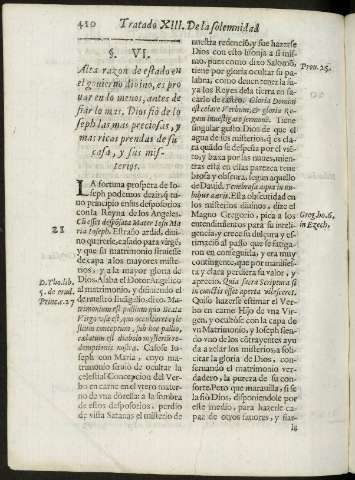 410 Tratado XIII. De la solemnidad
§. VI.
Alta razon de estado en
el govierno divino, es pro
var en lo menos, antes de
fiar lo mas. Dios fió de Io
seph las mas preciosas, y
mas ricas prendas de su
casa, y sus mis-
terios.
LA fortuna prospera de Io-
seph podemos dezir q̃ tu-
vo principio en sus desposorios
con la Reyna de los Angeles.
Cũ esset desposata Mater Iesu Ma
ria Ioseph. Estraño ardid, divi-
no querer ẽ, casado para virgẽ,
y que su matrimonio sirviesse
de capa a los mayores miste-
rios, y a la mayor gloria de
Dios. Alaba el Dotor Angelico
al matrimonio, y difiniendo el
de nuestro Indigilio, dize. Ma-
21
D. Tho. lib.
Princ. c. 7
Ioseph con Maria, cuyo ma-
trimonio sirviò de ocultar la
celestial Concepcion del Ver-
bo en carne en el utero mater-
no de una dõzella: a la sombra
de estos desposorios, perdio
de vista Satanas el misterio de
nuestra redenciõ, y fue hazerse
Dios con esto lisonja a si mis-
mo, pues como dixo Salomõ,
tiene por gloria ocultar su pa-
labra, como denen tener la su-
ya los Reyes de la tierra en sa-
carla de rastro. Gloria Domini
est celare Verbum, & gloria Re-
gum investigare sermonẽ. Tiene
singular gusto Dios de que el
agua de sus misterios, q̃ es cla-
ra quãdo se despeña por el vie-
to, baxa por las nuves, mien-
tras està en ellas parezca tene-
brosa y obscura, segun aquello
de David. Tenebrosa aqua in nu-
bibus aeris. Esta obscuridad en
los misterios divinos, dize el
Magno Gregorio, pica a los
entendimientos para su inteli-
gencia, y crece su dulçura y es-
timació al passo que se fatiga-
ron en conseguirla, y era muy
contingente, que por manifies-
ta y clara perdiera su valor, y
aprecio. Quia sacra Scriptura si
in cunctis esset aperta vilesceret.
Quiso hazerle estimar el Ver-
bo en carne Hijo de una Vir-
gen, y ocultóse con la capa de
un Matrimonio, y Ioseph sien-
do uno de los cõtrayentes ayu-
da a zelar los misterios, a soli-
citar la gloria de Dios, con-
servando el matrimonio ver-
dadero, la pureza de su con-
sorte. Pero que maravilla, si se
la fió Dios, disponiendole por
este medio, para hazerle ca-
paz de otros favores, y fiar-
Prov. 25.
Greg. ho. 6.
in Ezech.
le